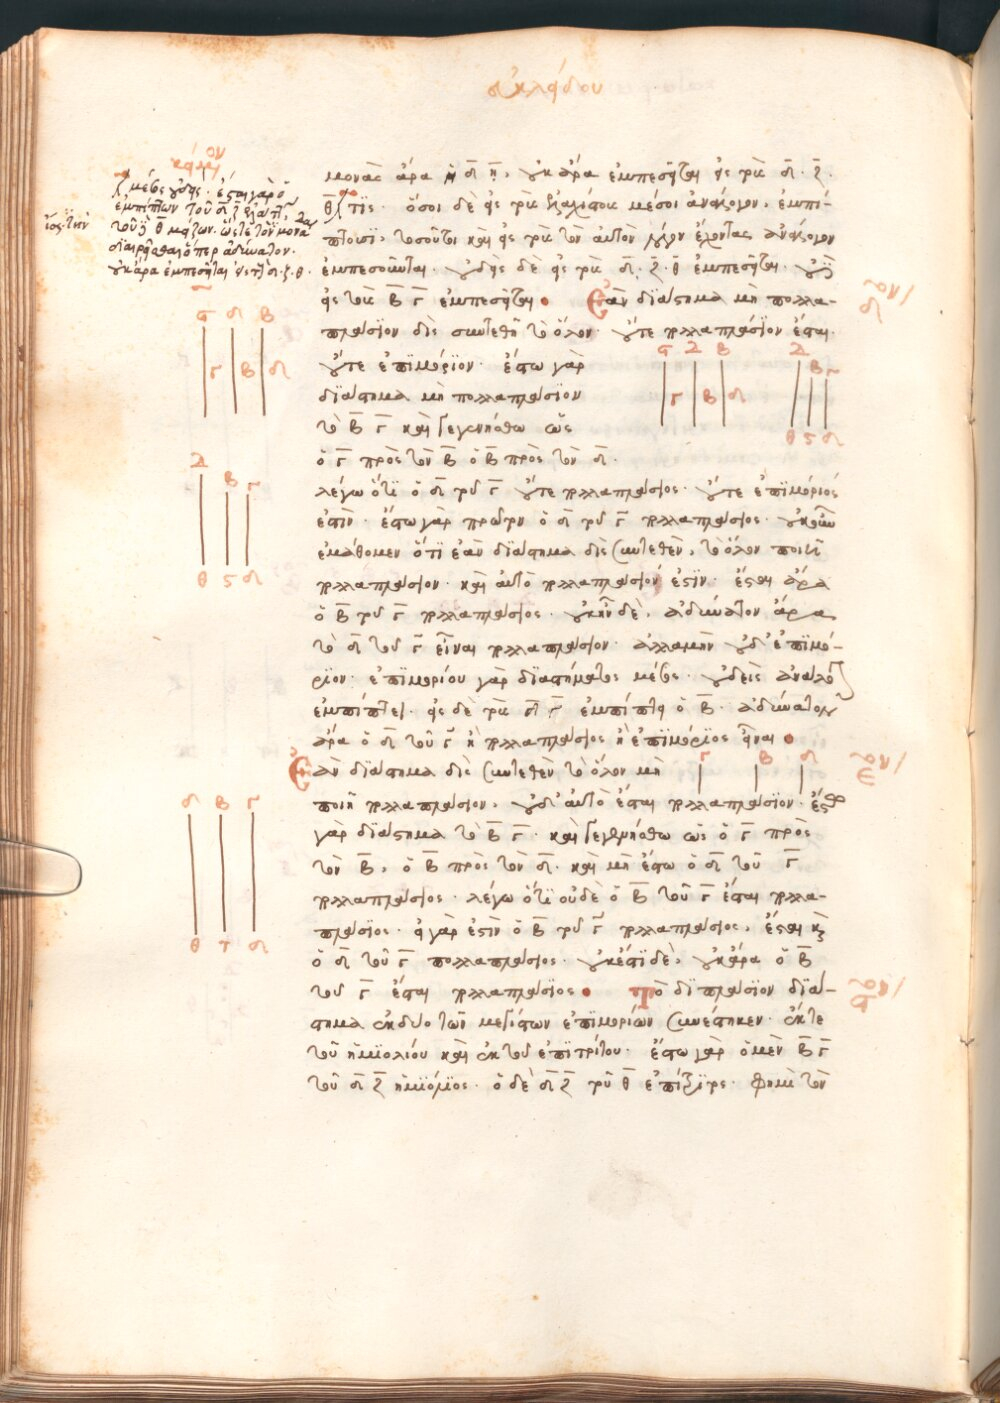 εὐκλείδου
μονὰς ἄρα ἡ δ η, οὐκ ἄρα ἐμπεσεῖται εἰς τοὺς δ. ζ.
θ τίς. ὅσοι δὲ εἰς τοὺς ἐλαχίστους μέσοι ἀνάλογον, ἐμπί-
πτουσι, τοσοῦτοι καὶ εἰς τοὺς τὸν αὐτὸν λόγον ἔχοντας ἀνάλογον
ἐμπεσοῦνται. οὐδεὶς δὲ εἰς τοὺς δ. ζ. θ ἐμπεσεῖται. οὐδ
εἰς τοὺς β γ ἐμπεσεῖται
Ἐὰν διάστημα μὴ πολλα-
πλάσιον δὶς συντεθῇ τὸ ὅλον. οὔτε πολλαπλάσιον ἔσται.
οὔτε ἐπιμόριον. ἔστω γὰρ
διάστημα μὴ πολλαπλάσιον
τὸ β γ καὶ γεγενήσθω ὡς
ὁ γ πρὸς τὸν β ὁ β πρὸς τὸν δ.
λέγω ὅτι ὁ δ τοῦ γ οὔτε πολλαπλάσιος. οὔτε ἐπιμόριός
ἐστιν. ἔστω γὰρ πρῶτον ὁ δ τοῦ γ πολλαπλάσιος. οὐκοῦν
ἐμάθομεν ὅτι ἐὰν διάστημα δὶς συντεθὲν, τὸ ὅλον ποιεῖ
πολλαπλάσιον. καὶ αὐτὸ πολλαπλάσιόν ἐστιν. ἔσται ἄρα
ὁ β τοῦ γ πολλαπλάσιος. οὐκ ἦν δὲ, ἀδύνατον ἄρα
τὸ δ τοῦ γ εἶναι πολλαπλάσιον. ἀλλὰ μὴν οὐδ' ἐπιμό-
ριον. ἐπιμορίου γὰρ διαστήματος μέσος. οὐδεὶς ἀνάλο
ἐμπίπτει. εἰς δὲ τοὺς δ γ ἐμπίπτει ὁ β. ἀδύνατον
ἄρα ὁ δ τοῦ γ ἢ πολλαπλάσιος ἢ ἐπιμόριος εἶναι
Ἐὰν διάστημα δὶς συντεθὲν τὸ ὅλον μὴ
ποιῇ πολλαπλάσιον, οὐδ' αὐτὸ ἔσται πολλαπλάσιον. ἔστω
γὰρ διάστημα τὸ β γ. καὶ γεγενήσθω ὡς ὁ γ πρὸς
τὸν β, ὁ β πρὸς τὸν δ. καὶ μὴ ἔστω ὁ δ τοῦ γ
πολλαπλάσιος. λέγω ὅτι οὐδὲ ὁ β τοῦ γ ἔσται πολλα-
πλάσιος. εἰ γάρ ἐστιν ὁ β τοῦ γ πολλαπλάσιος, ἔσται καὶ
ὁ δ τοῦ γ πολλαπλάσιος. οὐκ ἔστι δὲ, οὐκ ἄρα ὁ β
τοῦ γ ἔσται πολλαπλάσιος
Τὸ διπλάσιον διά-
στημα ἐκ δύο τῶν μεγίστων ἐπιμορίων συνέστηκεν. ἔκ τε
τοῦ ἡμιολίου καὶ ἐκ τοῦ ἐπιτρίτου. ἔστω γὰρ ὁ μὲν β γ
τοῦ δ ζ ἡμιόλιος. ὁ δὲ δ ζ τοῦ θ ἐπίτριτος. φημὶ τὸν
μέσος οὐδείς. ἔσται γὰρ ὁ
ἐμπίπτων τοῦ δ ζ ἐλάττ
τοῦ θ μείζων. ὥστε τὴν μονά
διαιρεῖσθαι ὅπερ ἀδύνατον.
οὐκ ἄρα ἐμπεσεῖται εἰς τ δ. ζ. θ.
α δ β
γ β δ
α β γ
θ ς δ
α δ β
γ β δ
α β γ
θ ς δ
γ β δ
δ β γ
θ τ δ